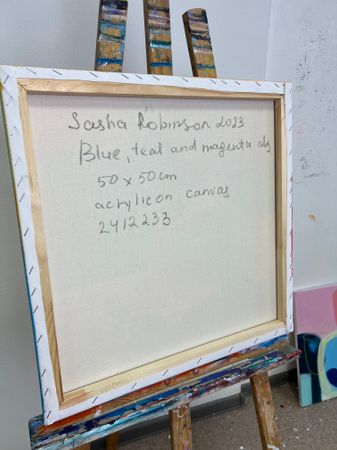 Sasha Robinson 2023
Blue, teal and magenta abs
50 x 50 cm
acrylic on canvas
2412233